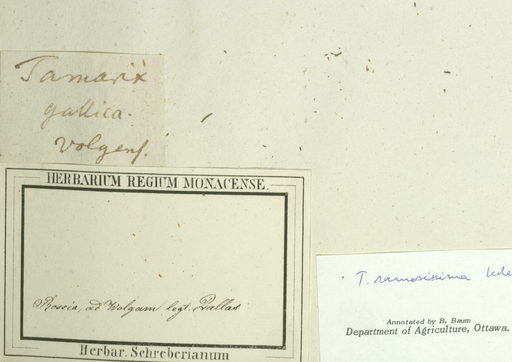 Tamarix
gallica.
Volgens.
HERBARIUM REGIUM MONACENSE.
Rossia, ad Wolgam legt. Pallas
Herbar. Schreberianum
T. ramosissima Lede
Annotated by B. Baum
Department of Agriculture, Ottawa.